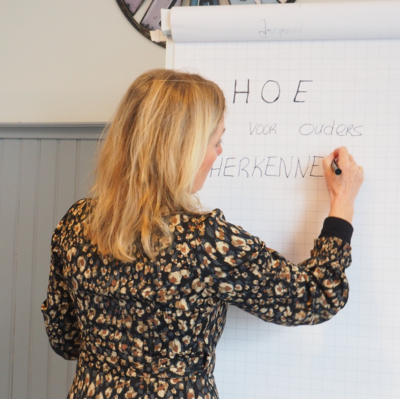 HOE
voor ouders
HERKENNE